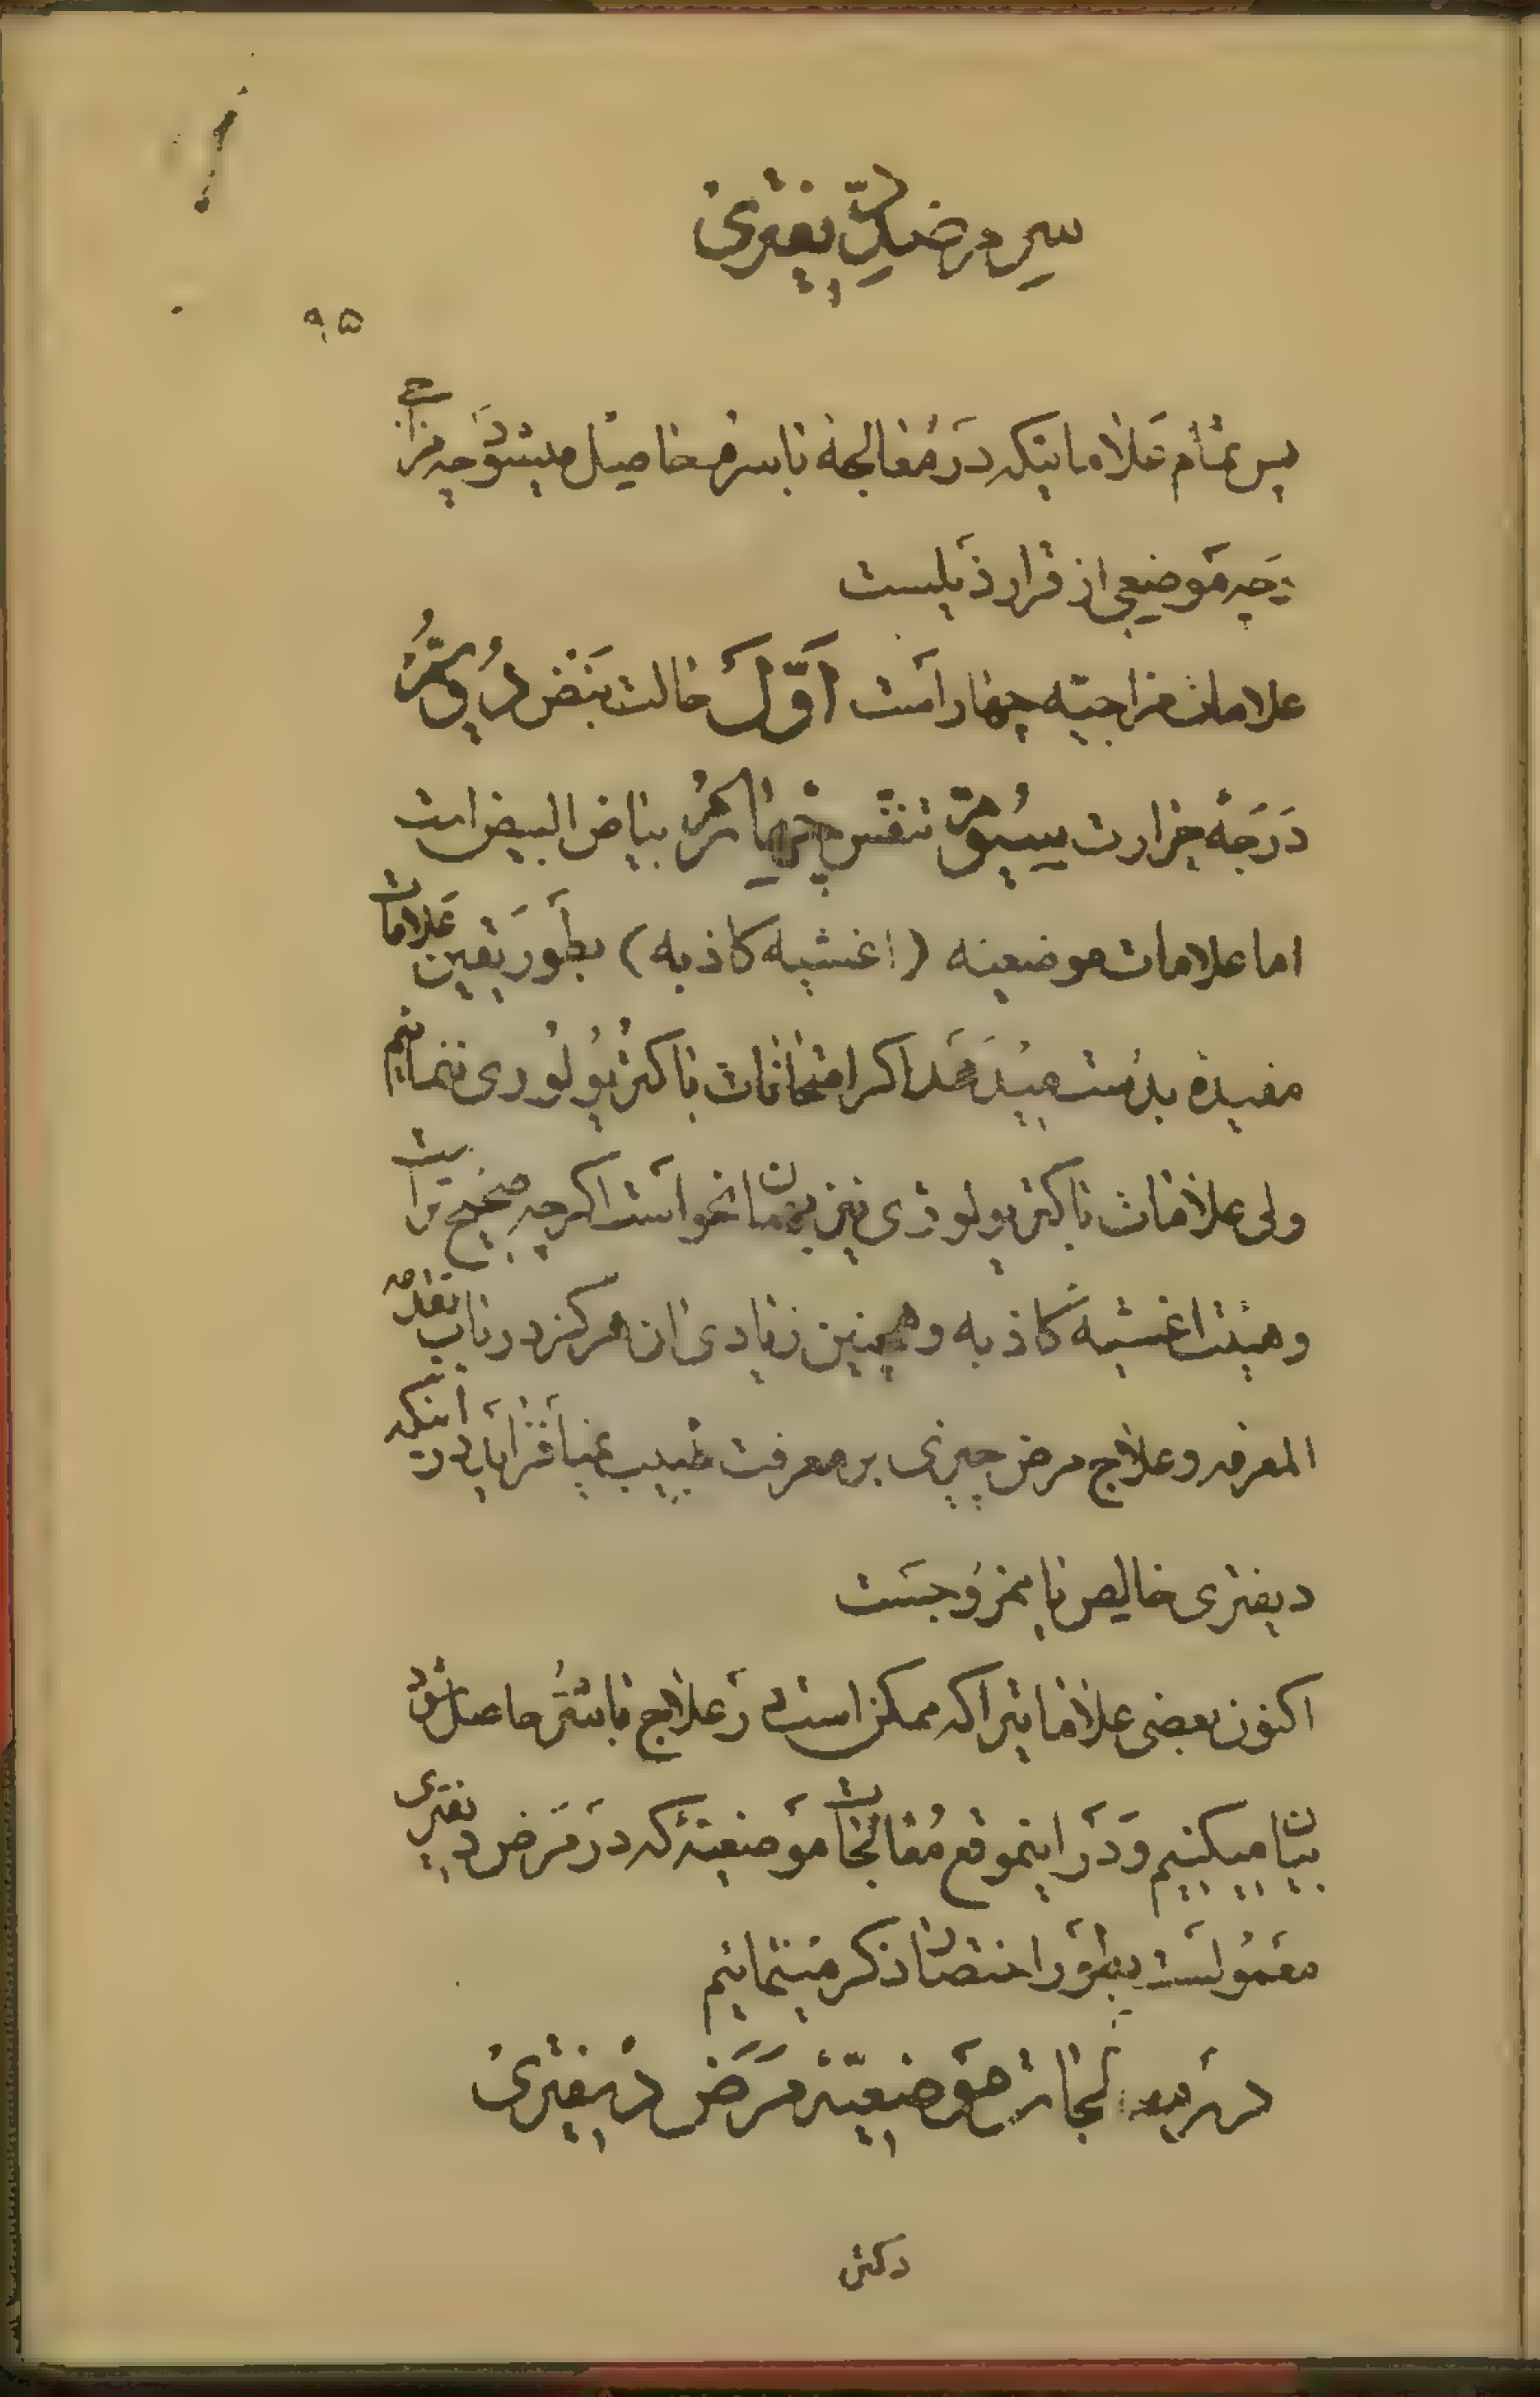 سرم ضد دیفتری
۹۵
پس تمام علاماتیکه در معالجه با سرم حاصل میشود چه مزاجی
و چه موضعی از قرار ذیلست
علامات مزاجیّه چهار است اوّل حالت نبض دویّم
درجهٔ حرارت سیوّم تنفّس چهارم بیاض البیض است
اما علامات موضعیه (اغشیه کاذبه) بطور یقین علامات
مفیدهٔ بدست میدهد اگر امتحانات باکتریولوژی ننمائیم
ولی علامات باکتریولوژی نیز بهمان نحو است اگرچه صحیح تر است
و هیئت اغشیه کاذبه و همچنین زیادی ان مرکز در باب تقدمه
المعرفه و علاج مرض چیزی بر معرفت طبیب نمیافزاید در اینکه
دیفتری خالص یا ممزوجست
اکنون بعضی علاماتیرا که ممکن است در علاج با سرم حاصل شود
بیان میکنیم و در اینموقع معالجات موضعیهٔ که در مرض دیفتری
معمولست بطور اختصار ذکر مینمائیم
در معالجات موضعیّه مرض دیفتری
دکتر